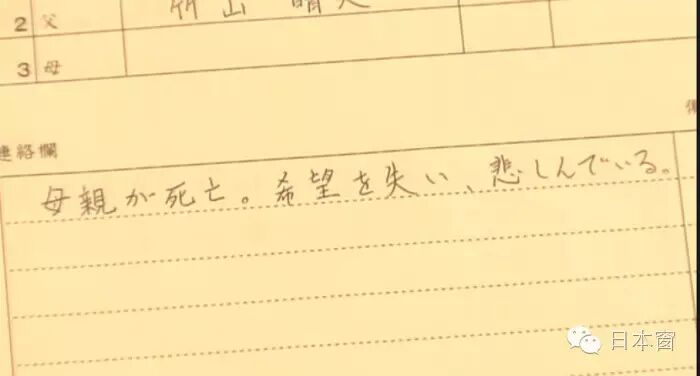 2 父 竹山 晴夫
3 母
連絡欄
母親が死亡。希望を失い、悲しんでいる。
日本窗